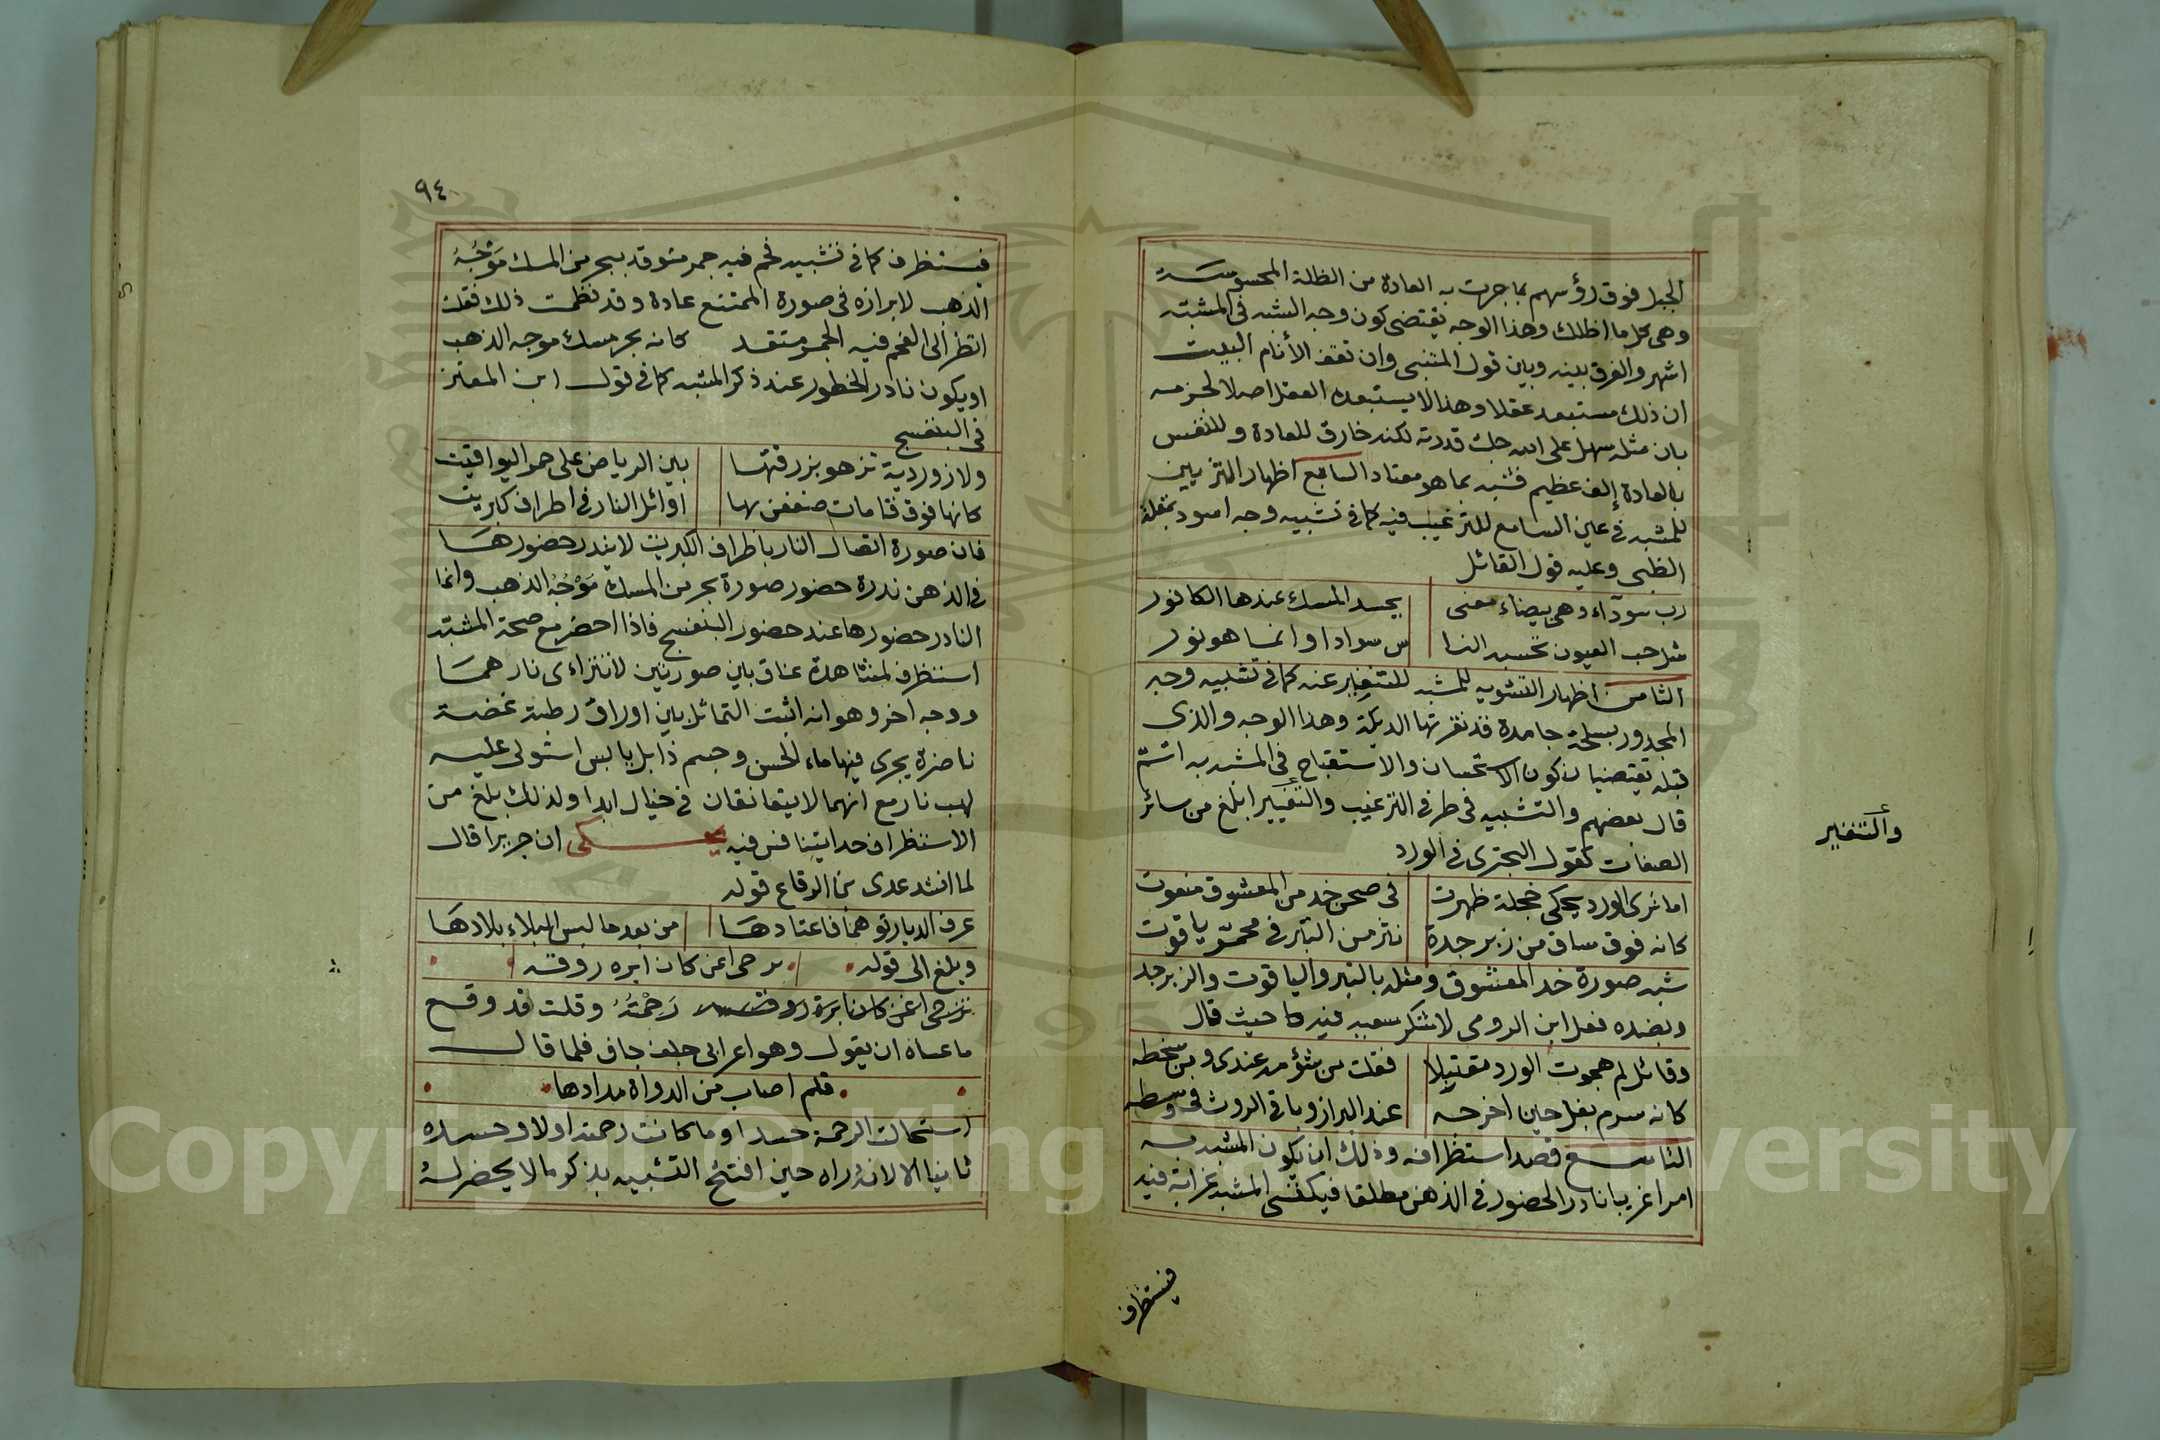 الجبل فوق رؤسهم بما جرت به العادة من الظلة المحسوسة
وهى كل ما اظلك وهذا الوجه يقتضى كون وجه الشبه فى المشبه به
اشهر والفرق بينه وبين قول المتنبى وان تفق الأنام البيت
ان ذلك مستبعد عقلا وهذا لا يستبعده العقل اصلا لجزمه
بان مثله سهل على الله جلت قدرته لكنه خارق للعادة وللنفس
بالعادة إلف عظيم فشبه بما هو معتاد السابع اظهار التزيين
للمشبه فى عين السامع للترغيب فيه كما فى تشبيه وجه اسود بمقلة
الظبى وعليه قول القائل
رب سوداء وهى بيضاء معنى يحسد المسك عندها الكافور
مثل حب العيون تحسبه النا س سوادا وانما هو نور
الثامن اظهار التشويه للمشبه للتنفير عنه كما فى تشبيه وجه
المجدور بسلحة جامدة قد نقرتها الديكة وهذا الوجه والذى
قبله يقتضيان كون الاستحسان والاستقباح فى المشبه به اتم
قال بعضهم والتشبيه فى طرفى الترغيب والتغيير ابلغ من سائر
والتنفير
الصفات كقول البحترى فى الورد
اما ترى الورد يحكى خجلة ظهرت فى صحن خد من المعشوق منعوت
كانه فوق ساق من زبرجدة نثر من التبر فى محمر ياقوت
شبه صورة خد المعشوق ومثله بالتبر والياقوت والزبرجد
وبضده فعل ابن الرومى حيث قال
وقائل لم هجوت الورد مقتبلا فقلت من شؤمه عندى ومن سخطه
كانه سرم بغل حين اخرجه عند البراز وباقى الروث فى وسطه
التاسع قصد استظرافه وذلك ان يكون المشبه به
امرا غريبا نادر الحضور فى الذهن مطلقا فيكتسى المشبه غرابة فيه
فيستظرف
٩٤
فيستظرف كما فى تشبيه فحم فيه جمر متوقد ببحر من المسك مَوْجُهُ
الذهب لابرازه فى صورة الممتنع عادة وقد نظمت ذلك فقلت
انظر الى الفحم فيه الجمر متقد كانه بحر مسك موجه الذهب
او يكون نادر الخطور عند ذكر المشبه كما فى قول ابن المعتز
فى البنفسج
ولازوردية تزهو بزرقتها بين الرياض على حمر اليواقيت
كانها فوق قامات ضعفن بها اوائل النار فى اطراف كبريت
فان صورة اتصال النار باطراف الكبريت لا يندر حضورها
فى الذهن ندرة حضور صورة بحر من المسك مَوْجُه الذهب وانما
النادر حضورها عند حضور البنفسج فاذا احضر مع صحة المشبه
استظرف لمشاهدة عناق بين صورتين لا تتراءى نارهما
ووجه اخر وهو انه اثبت التماثل بين اوراق رطبة غضة
ناضرة يجرى فيها ماء الحسن وجسم ذابل يابس استولى عليه
لهب نار مع انهما لا يتعانقان فى خيال ابدا ولذلك بلغ من
الاستظراف حدا يتنافس فيه يحكى ان جريرا قال
لما انشد عدى بن الرقاع قوله
عرف الديار توهما فاعتادها من بعد ما لبس البلاء بلادها
وبلغ الى قوله تزجى اغن كان ابره روقه
تزجى اغن كان ابرة روقه رَحِمْتُهُ وقلت قد وقع
ما عساه ان يقول وهو اعرابى جلف جاف فلما قال
قلم اصاب من الدواة مدادها
استحالت الرحمة حسدا وما كانت رحمته اولا وحسده
ثانيا الا لانه راه حين افتتح التشبيه بذكر ما لا يحضر له
Copyright © King Saud University